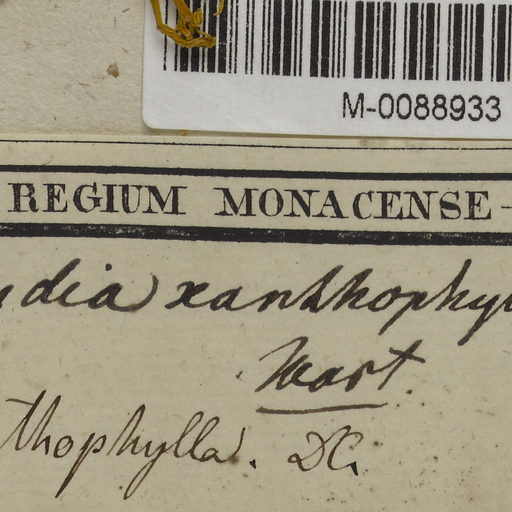 M-0088933
REGIUM MONACENSE -
dia xanthophy
Mart.
thophylla. DC.